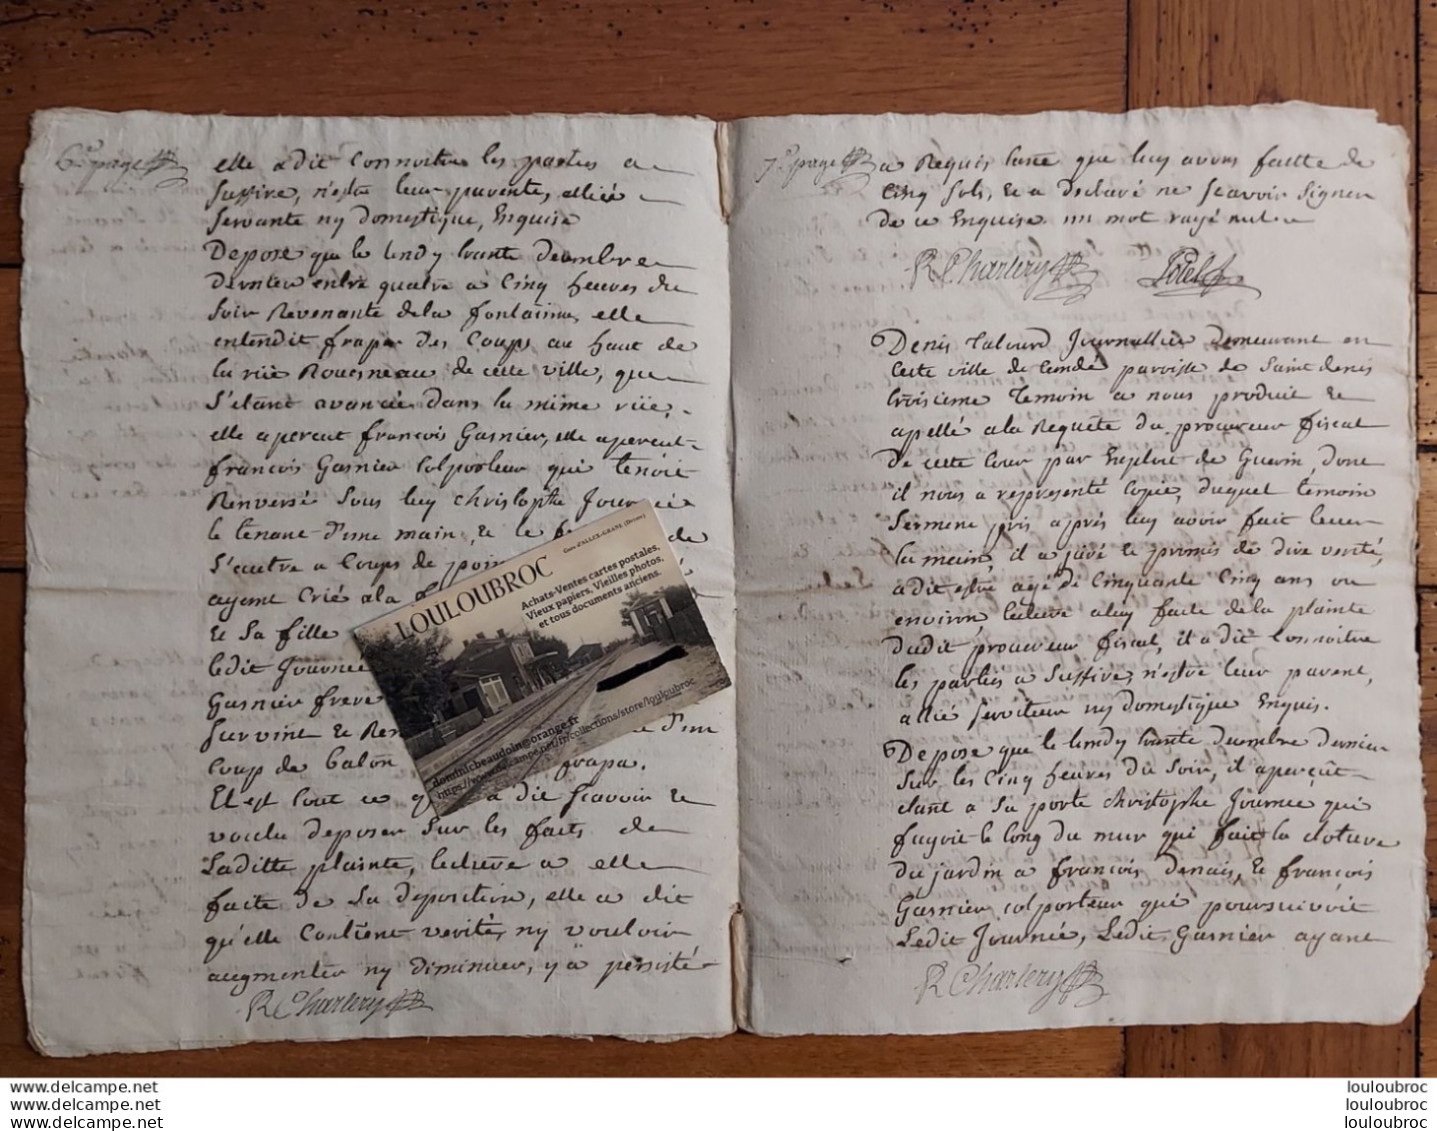 6e page
elle a dit Connoitre les parties a
Suffire, n'estre leur parente, alliée
Servante ny domestique, Enquise
Depose que le lundy trante decembre
dernier entre quatre a Cinq heures du
Soir Revenante de la fontainne, elle
entendit fraper des Coups au haut de
la rüe Rouesneau de cette ville, que
S'etant avancée dans la mime rüe,
elle apercut françois Gasnier, elle apercut
françois Gasnier Colporteur qui tenoit
Renversé Sous luy Christophe Journée
le tenant d'une main, et le de
S'autre a Coups de
ayant Crié a la
et Sa fille
ledit Journée
Gasnier frere
Survint et d'une
Coup de baton frapa.
Et est tout ce a dit Scavoir et
voulu deposer Sur les faits de
Laditte plainte, lecture a elle
faite de Sa deposition, elle a dit
qu'elle Contient verité, ny vouloir
augmenter ny diminuer, y a persisté
R Charlery
LOULOUBROC
Gare d'ALLEX-GRANE (Drome)
Achats-Ventes cartes postales,
Vieux papiers, Vieilles photos,
et tous documents anciens.
dominicbeaudoin@orange.fr
https://www.delcampe.net/fr/collections/store/louloubroc
7e page
a Requis taxe que luy avons faitte de
Cinq Sols, et a Declaré ne Scavoir Signer
de ce Enquise un mot rayé nul
R Charlery
Denis Journallier demeurant en
Cette ville de Condé parroisse de Saint denis
troisieme temoin a nous produit et
apellé a la Requête du procureur fiscal
de cette Cour par Exploit de Guerin, dont
il nous a representé Copie, duquel temoin
Serment pris après luy avoir fait lever
la main, il a juré et promis de dire verité,
a dit estre agé de Cinquante Cinq ans ou
environ lecture a luy faite de la plainte
dudit procureur fiscal, il a dit Connoitre
les parties a Suffire, n'estre leur parent,
allié serviteur ny domestique Enquis.
Depose que le lundy trante decembre dernier
Sur les Cinq heures du Soir, il aperçût
etant a Sa porte Christophe Journée qui
fuyoit le long du mur qui fait la cloture
du jardin a francois Denais, et francois
Gasnier colporteur qui poursuivoit
Ledit Journée, Ledit Gasnier ayant
R Charlery
www.delcampe.net
www.delcampe.net
www.delcampe.net
louloubroc
louloubroc
louloubroc